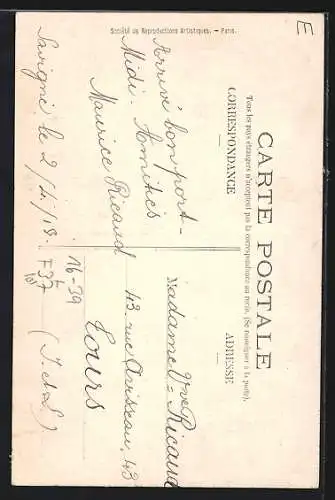 E
CARTE POSTALE
Tous les pays étrangers n'acceptent pas la correspondance au recto. (Se renseigner à la poste).
CORRESPONDANCE
ADRESSE
Arrivé bon port-
Midi. Amitiés
Maurice Ricaud
Savigné le 2/4/18.
Madame Vve Ricaud
43. rue Avisseau. 43
Tours
(I. et L.)
16-39
F37
Société de Reproductions Artistiques. - Paris.